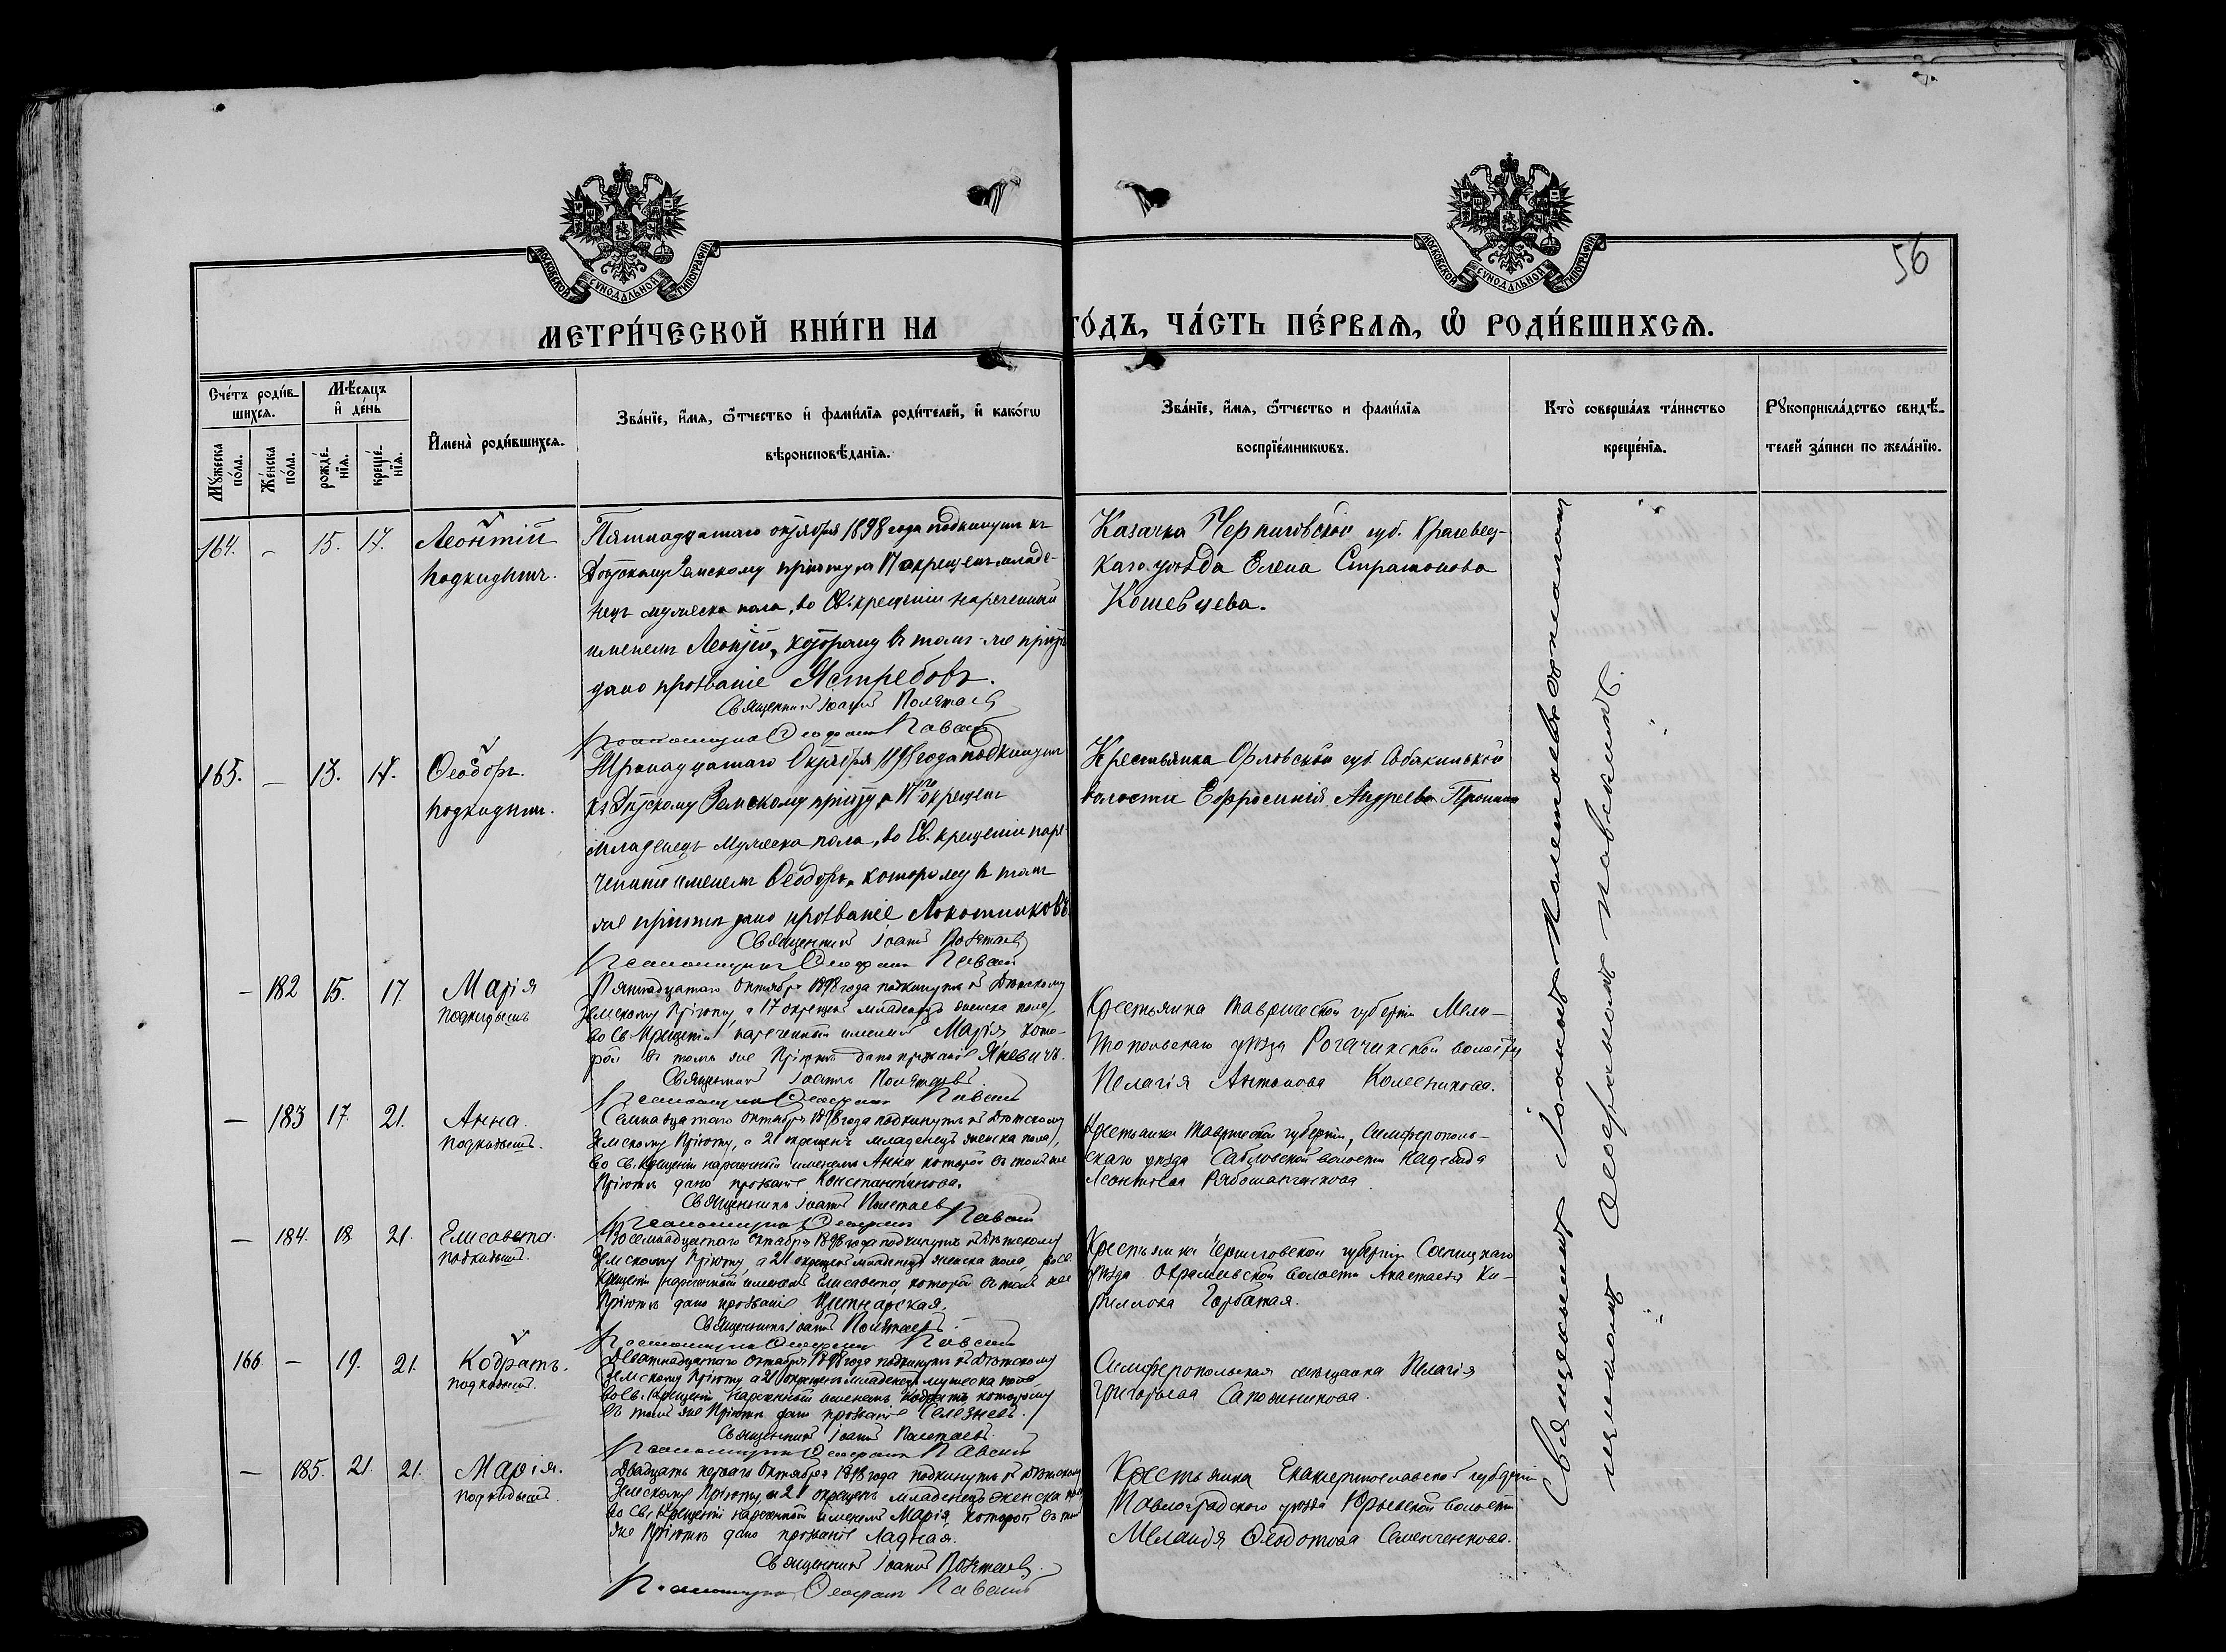 МОСКОВСКОЙ СѴНОДАЛЬНОЙ ТИПОГРАФІИ
МОСКОВСКОЙ СѴНОДАЛЬНОЙ ТИПОГРАФІИ
56
МЕТРИ́ЧЕСКОЙ КНИ́ГИ НА ГО́ДЪ, ЧА́СТЬ ПЕ́РВАЯ, Ѽ РОДИ́ВШИХСЯ.
Сче́тъ роди́в-
шихся.
Мѣ́сяцъ
и҆ де́нь
Мꙋжеска по́ла.
Же́нска по́ла.
рожде́-нїя.
креще́-нїя.
И҆мена̀ роди́вшихся.
Зва́нїе, и҆́мя, ѻ҆́тчество и҆ фами́лїя роди́телей, и҆ како́гѡ
вѣроисповѣ́данїя.
Зва́нїе, и҆́мя, ѻ҆́тчество и фами́лїя
воспрїе́мникѡвъ.
Кто̀ соверша́лъ та́инство
креще́нїя.
Рꙋкоприкла́дство свидѣ́-
телей за́писи по жела́нїю.
164. – 15. 17. Леонтій
подкидышъ.
Пятнадцатаго октября 1898 года подкинутъ къ
Дѣтскому Земскому пріюту, а 17 окрещенъ младе-
нецъ мужеска пола, во Св. крещеніи нареченный
именемъ Леонтій, которому въ томъ-же пріютѣ
дано прозваніе Ястребовъ.
Священникъ Іоаннъ Полетаевъ
Псаломщикъ Павскій
Казачка Черниговской губ. Кролевец-
каго уѣзда Елена Стратонова
Кошевцева.
165. – 13. 17. Ѳеодоръ.
подкидышъ.
Тринадцатаго Октября 1898 года подкинутъ
къ Дѣтскому Земскому пріюту, а 17го окрещенъ
младенецъ мужеска пола, во Св. крещеніи наре-
ченный именемъ Ѳеодоръ, которому въ томъ
же пріютѣ дано прозваніе Локотниковъ
Священникъ Іоаннъ Полетаевъ
Псаломщикъ Павскій
Крестьянка Орловской губ.
волости Ефросинія Андреева
– 182 15. 17. Марія
подкидышъ.
Пятнадцатаго Октября 1898 года подкинутъ къ Дѣтскому
Земскому Пріюту, а 17 окрещенъ младенецъ женска пола,
во Св. Крещеніи нареченный именемъ Марія кото-
рой въ томъ же Пріютѣ дано прозваніе Яневичъ.
Священникъ Іоаннъ Полетаевъ
Псаломщикъ Павскій
Крестьянка Таврической губерніи Мели-
топольскаго уѣзда Рогачикской волости
Пелагія Антонова Колесникова.
– 183 17. 21. Анна.
подкидышъ.
Семнадцатаго Октября 1898 года подкинутъ къ Дѣтскому
Земскому Пріюту, а 21 окрещенъ младенецъ женска пола,
во Св. Крещеніи нареченный именемъ Анна которой въ томъ же
Пріютѣ дано прозваніе Константинова.
Священникъ Іоаннъ Полетаевъ
Псаломщикъ Павскій
Крестьянка Таврической губерніи, Симферополь-
скаго уѣзда Сабловской волости Надежда
Леонтьева Рябошапченкова.
– 184. 18 21. Елисавета.
подкидышъ.
Восемнадцатаго Октября 1898 года подкинутъ къ Дѣтскому
Земскому Пріюту, а 21 окрещенъ младенецъ женска пола, во Св.
Крещеніи нареченный именемъ Елисавета, которой въ томъ же
Пріютѣ дано прозваніе
Священникъ Іоаннъ Полетаевъ
Псаломщикъ Павскій
Крестьянка Черниговской губерніи Сосницкаго
уѣзда волости Анастасія Ки-
риллова Горбатая.
166 – 19. 21. Кодратъ.
подкидышъ.
Девятнадцатаго Октября 1898 года подкинутъ къ Дѣтскому
Земскому Пріюту а 21 окрещенъ младенецъ мужеска пола
во Св. Крещеніи нареченный именемъ Кодратъ которому
въ томъ же Пріютѣ дано прозваніе Селезневъ.
Священникъ Іоаннъ Полетаевъ.
Псаломщикъ Павскій
Симферопольская мѣщанка Пелагія
Григорьева Сапожникова.
– 185. 21. 21. Марія.
подкидышъ.
Двадцать перваго Октября 1898 года подкинутъ къ Дѣтскому
Земскому Пріюту, а 21 окрещенъ младенецъ женска пола
во Св. Крещеніи нареченный именемъ Марія которой въ томъ
же Пріютѣ дано прозваніе Ладная.
Священникъ Іоаннъ Полетаевъ.
Псаломщикъ Павскій
Крестьянка Екатеринославской губерніи
Павлоградскаго уѣзда Юрьевской волости
Меланія Ѳедотова Семенченкова.
Священникъ Іоаннъ Полетаевъ съ псаломъ-
щикомъ Павскимъ.